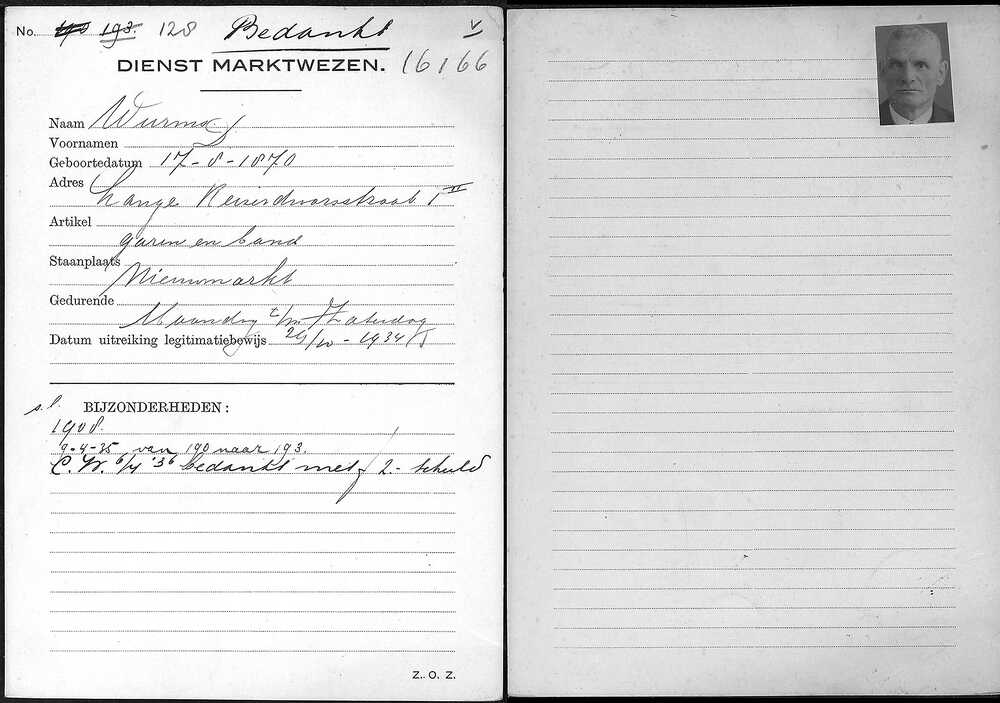 No. 190 193. 128 Bedankt V
DIENST MARKTWEZEN. 16166
Naam Wurms
Voornamen
Geboortedatum 17-8-1870
Adres
Lange Reisirdwarsstraat 1 II
Artikel
garen en band
Staanplaats
Nieuwmarkt
Gedurende
Maandag t/m Zaterdag
Datum uitreiking legitimatiebewijs 29/10-1934
s.l. BIJZONDERHEDEN:
1908.
9-4-35 van 190 naar 193.
C.W. 6/4 '36 bedankt met f 2.- schuld
Z. O. Z.